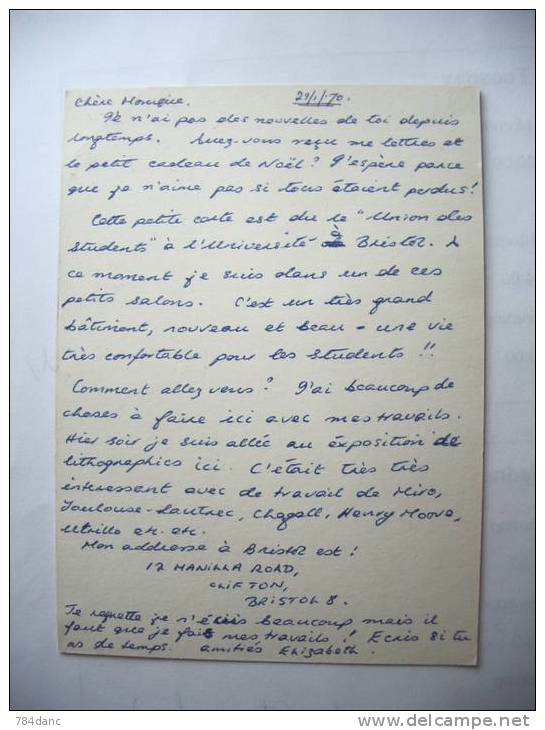 Chère Monique. 29/1/70.
Je n'ai pas des nouvelles de toi depuis
longtemps. Avez-vous reçu me lettres et
le petit cadeau de Noël? J'espère parce
que je n'aime pas si tous étaient perdus!
Cette petite carte est du le "Union des
Students" à l'Université à Bristol. A
ce moment je suis dans un de ces
petits salons. C'est un très grand
bâtiment, nouveau et beau - une vie
très confortable pour les students!!
Comment allez vous? J'ai beaucoup de
choses à faire ici avec mes travails.
Hier soir je suis allée au exposition de
lithographics ici. C'était très très
intéressent avec de travail de Miro,
Toulouse-Lautrec, Chagall, Henry Moore,
Utrillo etc. etc.
Mon addresse à Bristol est!
12 MANILLA ROAD,
CLIFTON,
BRISTOL 8.
Je regrette je n'écris beaucoup mais il
faut que je fait mes travails! Ecris si tu
as de temps. amitiés Elizabeth.
784danc
delcampe.net